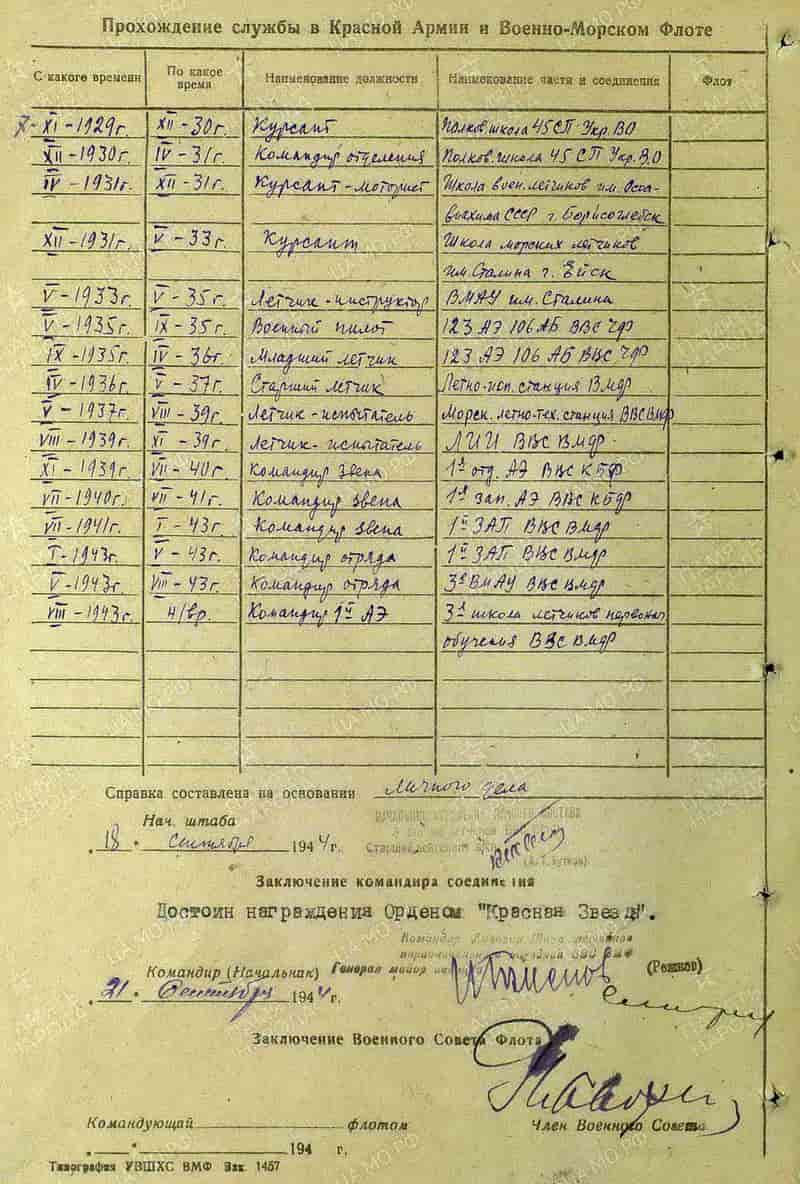 Прохождение службы в Красной Армии и Военно-Морском Флоте
С какого времени По какое время Наименование должности Наименование части и соединения Флот
XI-1929г. XII-30г. Курсант Полков. школа 45 СП Укр. ВО
XII-1930г. IV-31г. Командир отделения Полков. школа 45 СП Укр. В.О
IV-1931г. XII-31г. Курсант-моторист Школа воен. летчиков им. Осоа-
виахима СССР г. Борисоглебск
XII-1931г. V-33г. Курсант Школа морских летчиков
им. Сталина г. Ейск
V-1933г. V-35г. Летчик-инструктор ВМАУ им. Сталина
V-1935г. IX-35г. Военный пилот 123 АЭ 106 АБ ВВС ЧФ
IX-1935г. IV-36г. Младший летчик 123 АЭ 106 АБ ВВС ЧФ
IV-1936г. V-37г. Старший летчик Летно-исп. станция ВМФ
V-1937г. VIII-39г. Летчик-испытатель Морск. летно-тех. станция ВВС ВМФ
VIII-1939г. XI-39г. Летчик-испытатель ЛИИ ВВС ВМФ
XI-1939г. VII-40г. Командир звена 1й отд. АЭ ВВС КБФ
VII-1940г. VII-41г. Командир звена 1я зап. АЭ ВВС КБФ
VII-1941г. I-43г. Командир звена 1й ЗАП ВВС ВМФ
I-1943г. V-43г. Командир отряда 1й ЗАП ВВС ВМФ
V-1943г. VIII-43г. Командир отряда 3е ВМАУ ВВС ВМФ
VIII-1943г. н/вр. Командир 1й АЭ 3я школа летчиков первонач
обучения ВВС ВМФ
Справка составлена на основании личного дела
Нач. штаба
„18“ Сентября 1944г.
Заключение командира соединения
Достоин награждения Орденом "Красная Звезда".
Командир (Начальник) Генерал майор (Режнов)
„21“ Сентября 1944г.
Заключение Военного Совета Флота
Командующий флотом Член Военного Совета
„ “ 194 г.
Типография УВШХС ВМФ Зак. 1457